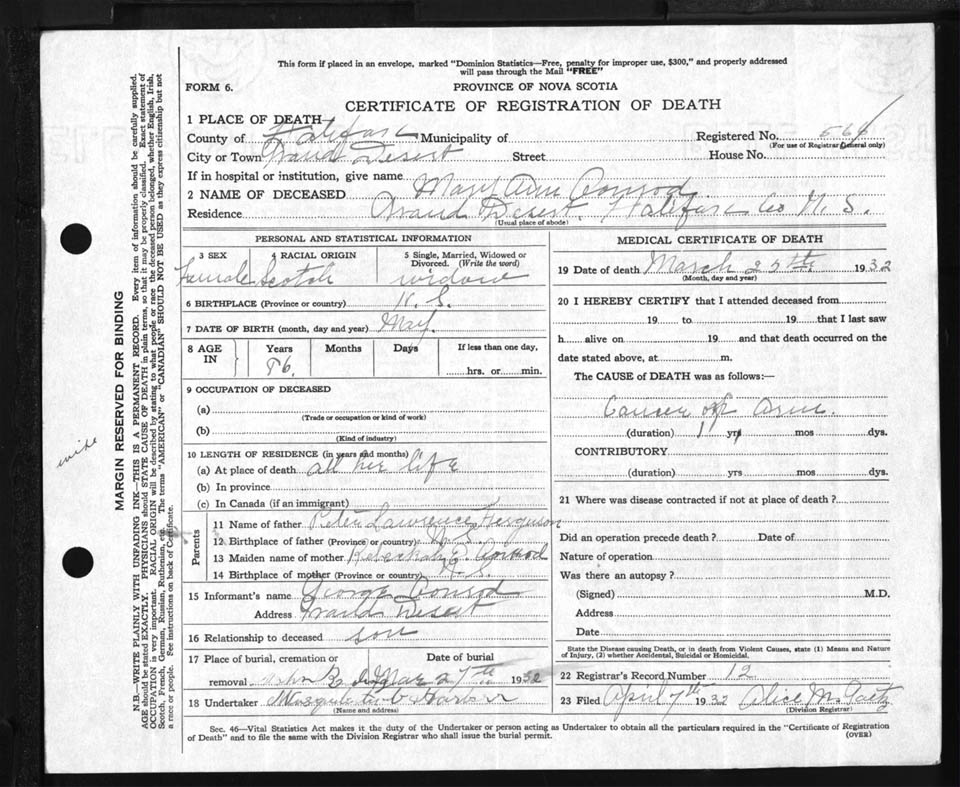 This form if placed in an envelope, marked "Dominion Statistics—Free, penalty for improper use, $300," and properly addressed
will pass through the Mail "FREE"
FORM 6.
PROVINCE OF NOVA SCOTIA
CERTIFICATE OF REGISTRATION OF DEATH
1 PLACE OF DEATH
County of Halifax Municipality of Registered No. 564
(For use of Registrar General only)
City or Town Grand Desert Street House No.
If in hospital or institution, give name
2 NAME OF DECEASED Mary Ann Conrod
Residence Grand Desert. Halifax Co N. S.
(Usual place of abode)
PERSONAL AND STATISTICAL INFORMATION
3 SEX 4 RACIAL ORIGIN 5 Single, Married, Widowed or Divorced. (Write the word)
Female Scotch widow
6 BIRTHPLACE (Province or country) N. S.
7 DATE OF BIRTH (month, day and year) May
8 AGE IN Years Months Days If less than one day,
86. hrs. or min.
9 OCCUPATION OF DECEASED
(a)
(Trade or occupation or kind of work)
(b)
(Kind of industry)
10 LENGTH OF RESIDENCE (in years and months)
(a) At place of death all her life
(b) In province
(c) In Canada (if an immigrant)
Parents
11 Name of father Peter Lawrence Ferguson
12 Birthplace of father (Province or country) N. S.
13 Maiden name of mother Rebeckah E. Conrod
14 Birthplace of mother (Province or country) N. S.
15 Informant's name George Conrod
Address Grand Desert
16 Relationship to deceased son
17 Place of burial, cremation or removal Date of burial
Mar 27th 1932
18 Undertaker Musquodoboit Harbor
(Name and address)
MEDICAL CERTIFICATE OF DEATH
19 Date of death March 25th 1932
(Month, day and year)
20 I HEREBY CERTIFY that I attended deceased from
19 to 19 that I last saw
h alive on 19 and that death occurred on the
date stated above, at m.
The CAUSE of DEATH was as follows:—
Cancer of Arm.
(duration) 1 yrs mos dys.
CONTRIBUTORY
(duration) yrs mos dys.
21 Where was disease contracted if not at place of death?
Did an operation precede death? Date of
Nature of operation
Was there an autopsy?
(Signed) M.D.
Address
Date
State the Disease causing Death, or in death from Violent Causes, state (1) Means and Nature
of Injury, (2) whether Accidental, Suicidal or Homicidal.
22 Registrar's Record Number 12
23 Filed April 7th 1932 Alice M. Gaetz
(Division Registrar)
Sec. 46—Vital Statistics Act makes it the duty of the Undertaker or person acting as Undertaker to obtain all the particulars required in the "Certificate of Registration
of Death" and to file the same with the Division Registrar who shall issue the burial permit.
(OVER)
MARGIN RESERVED FOR BINDING
N.B.—WRITE PLAINLY WITH UNFADING INK—THIS IS A PERMANENT RECORD. Every item of information should be carefully supplied.
AGE should be stated EXACTLY. PHYSICIANS should STATE CAUSE OF DEATH in plain terms, so that it may be properly classified. Exact statement of
OCCUPATION is very important. RACIAL ORIGIN will be described by stating to what people or race the deceased person belonged, whether English, Irish,
Scotch, French, German, Russian, Ruthenian, etc. The terms "AMERICAN" or "CANADIAN" SHOULD NOT BE USED as they express citizenship but not
a race or people. See instructions on back of Certificate.
wife